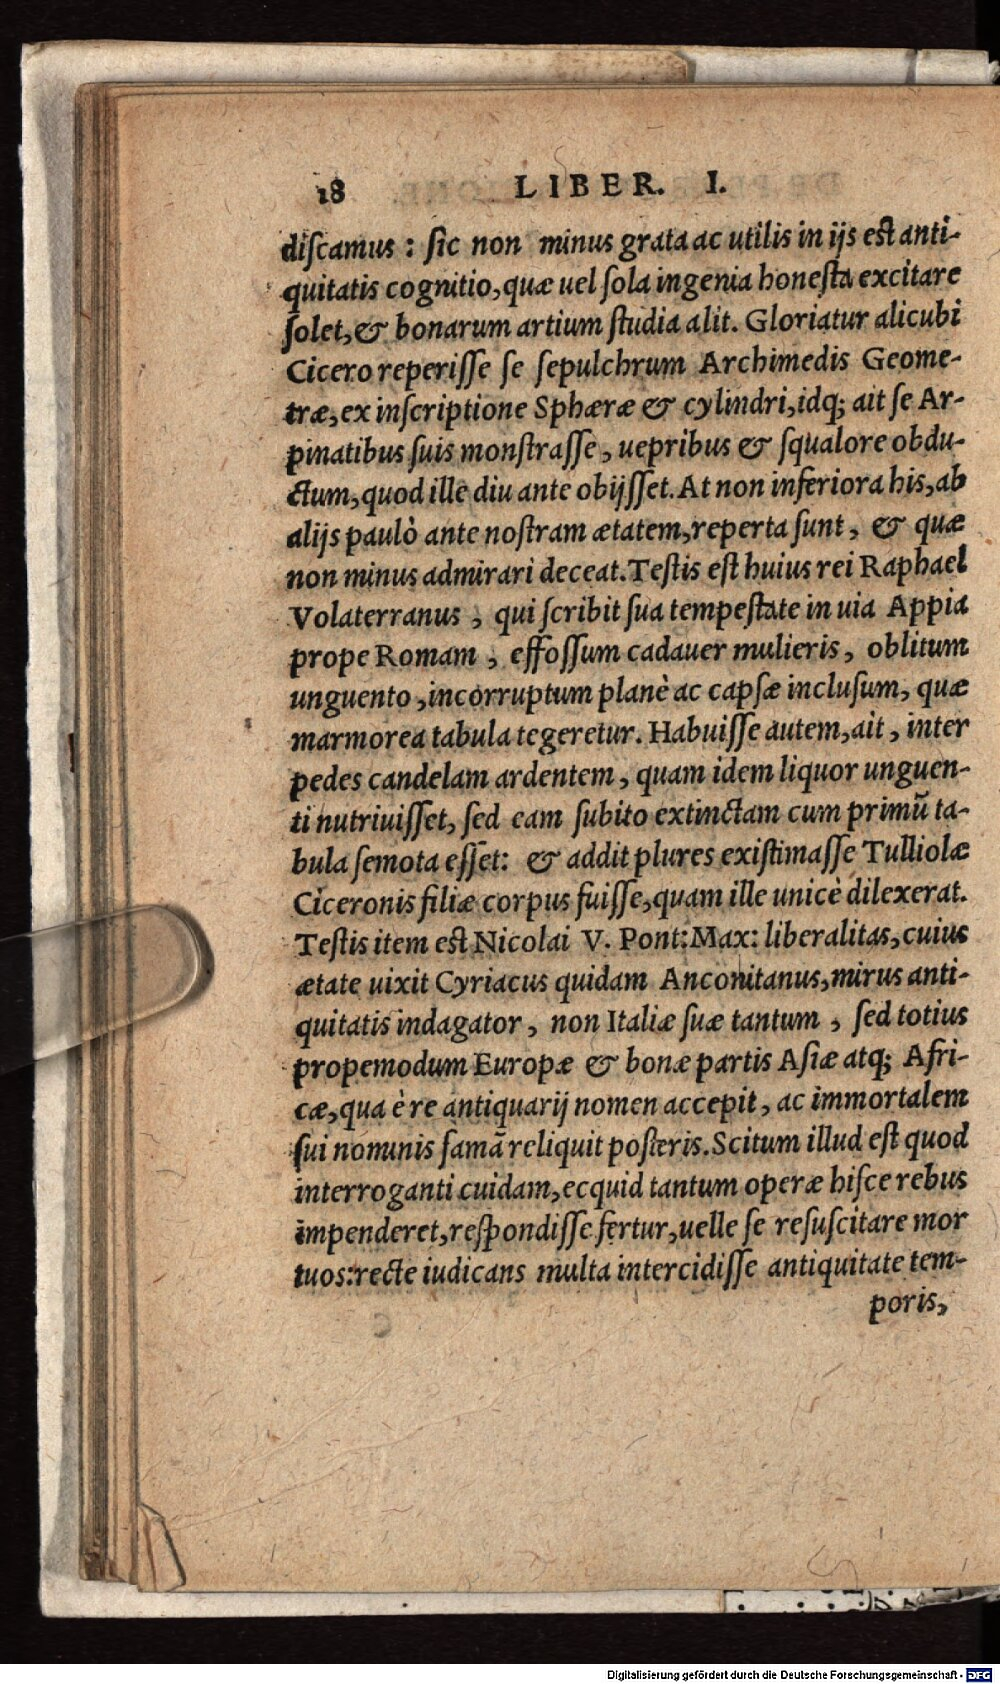 18 LIBER. I.
diſcamus : ſic non minus grata ac utilis in ijs est anti-
quitatis cognitio, quæ uel ſola ingenia honeſta excitare
ſolet, & bonarum artium ſtudia alit. Gloriatur alicubi
Cicero reperiſſe ſe ſepulchrum Archimedis Geome-
træ, ex inſcriptione Sphæræ & cylindri, idq; ait ſe Ar-
pinatibus ſuis monſtraſſe, uepribus & ſqualore obdu-
ctum, quod ille diu ante obijſſet. At non inferiora his, ab
alijs paulò ante noſtram ætatem, reperta ſunt, & quæ
non minus admirari deceat. Teſtis eſt huius rei Raphael
Volaterranus, qui ſcribit ſua tempeſtate in uia Appia
prope Romam, effoſſum cadauer mulieris, oblitum
unguento, incorruptum planè ac capſæ incluſum, quæ
marmorea tabula tegeretur. Habuiſſe autem, ait, inter
pedes candelam ardentem, quam idem liquor unguen-
ti nutriuiſſet, ſed eam ſubito extinctam cum primũ ta-
bula ſemota eſſet: & addit plures exiſtimaſſe Tulliolæ
Ciceronis filiæ corpus fuiſſe, quam ille unicè dilexerat.
Teſtis item est Nicolai V. Pont: Max: liberalitas, cuius
ætate uixit Cyriacus quidam Anconitanus, mirus anti-
quitatis indagator, non Italiæ ſuæ tantum, ſed totius
propemodum Europæ & bonæ partis Aſiæ atq; Afri-
cæ, qua è re antiquarij nomen accepit, ac immortalem
ſui nominis famã reliquit poſteris. Scitum illud eſt quod
interroganti cuidam, ecquid tantum operæ hiſce rebus
impenderet, reſpondiſſe fertur, uelle ſe reſuſcitare mor
tuos: recte iudicans multa intercidiſſe antiquitate tem-
poris,
Digitalisierung gefördert durch die Deutsche Forschungsgemeinschaft - DFG